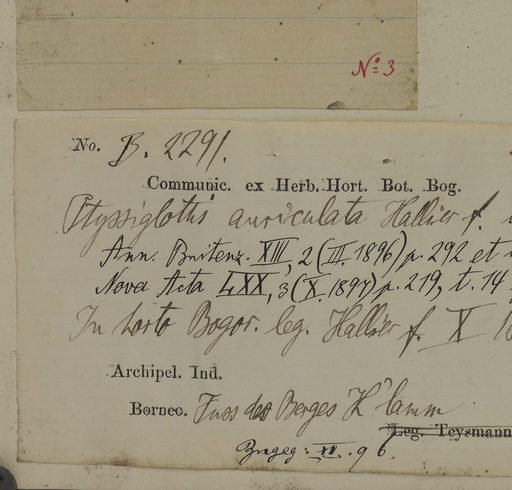 No 3
No. B. 2291.
Communic. ex Herb. Hort. Bot. Bog.
Ptyssiglottis auriculata Hallier f.
Ann. Buitenz. XIII, 2 (III. 1896) p. 292 et
Nova Acta LXX, 3 (X. 1897) p. 219, t. 14
In horto Bogor. leg. Hallier f. X
Archipel. Ind.
Borneo. Fuss des Berges K'lamm
Leg. Teysmann
96.